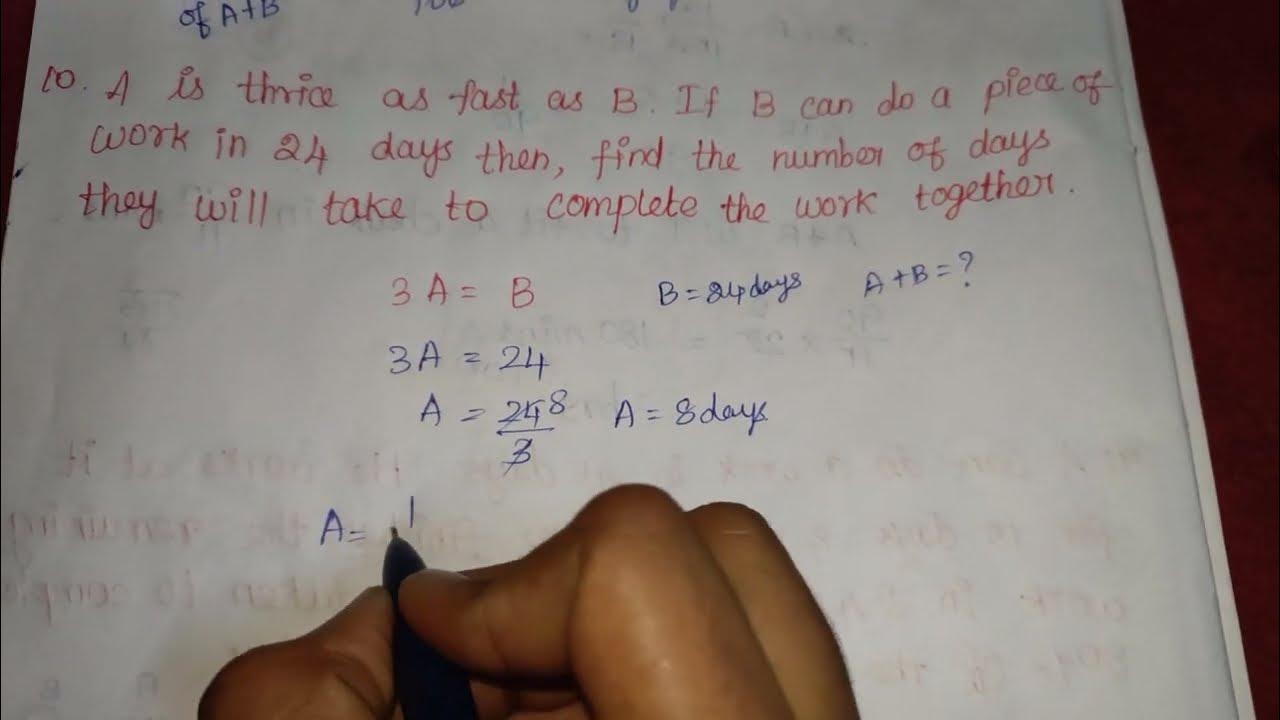 of A+B
10. A is thrice as fast as B. If B can do a piece of
work in 24 days then, find the number of days
they will take to complete the work together.
3A = B B = 24days A+B = ?
3A = 24
A = 24/3 8 A = 8days
A = 1